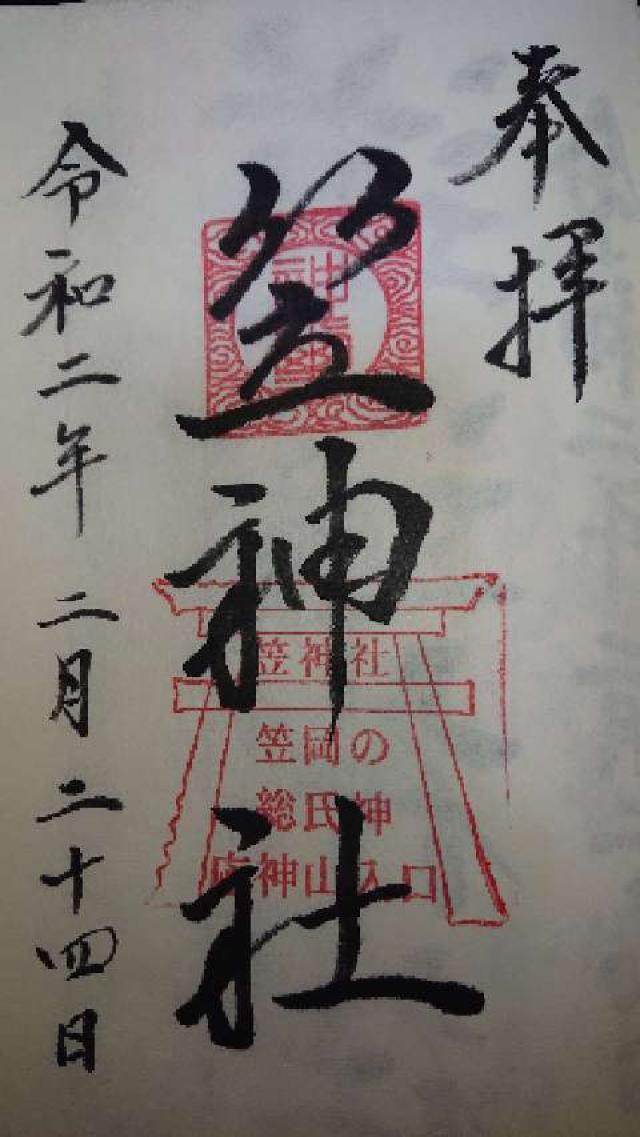 奉拝
笠神社
令和二年二月二十四日
笠神社
笠岡の
総氏神
応神山入口